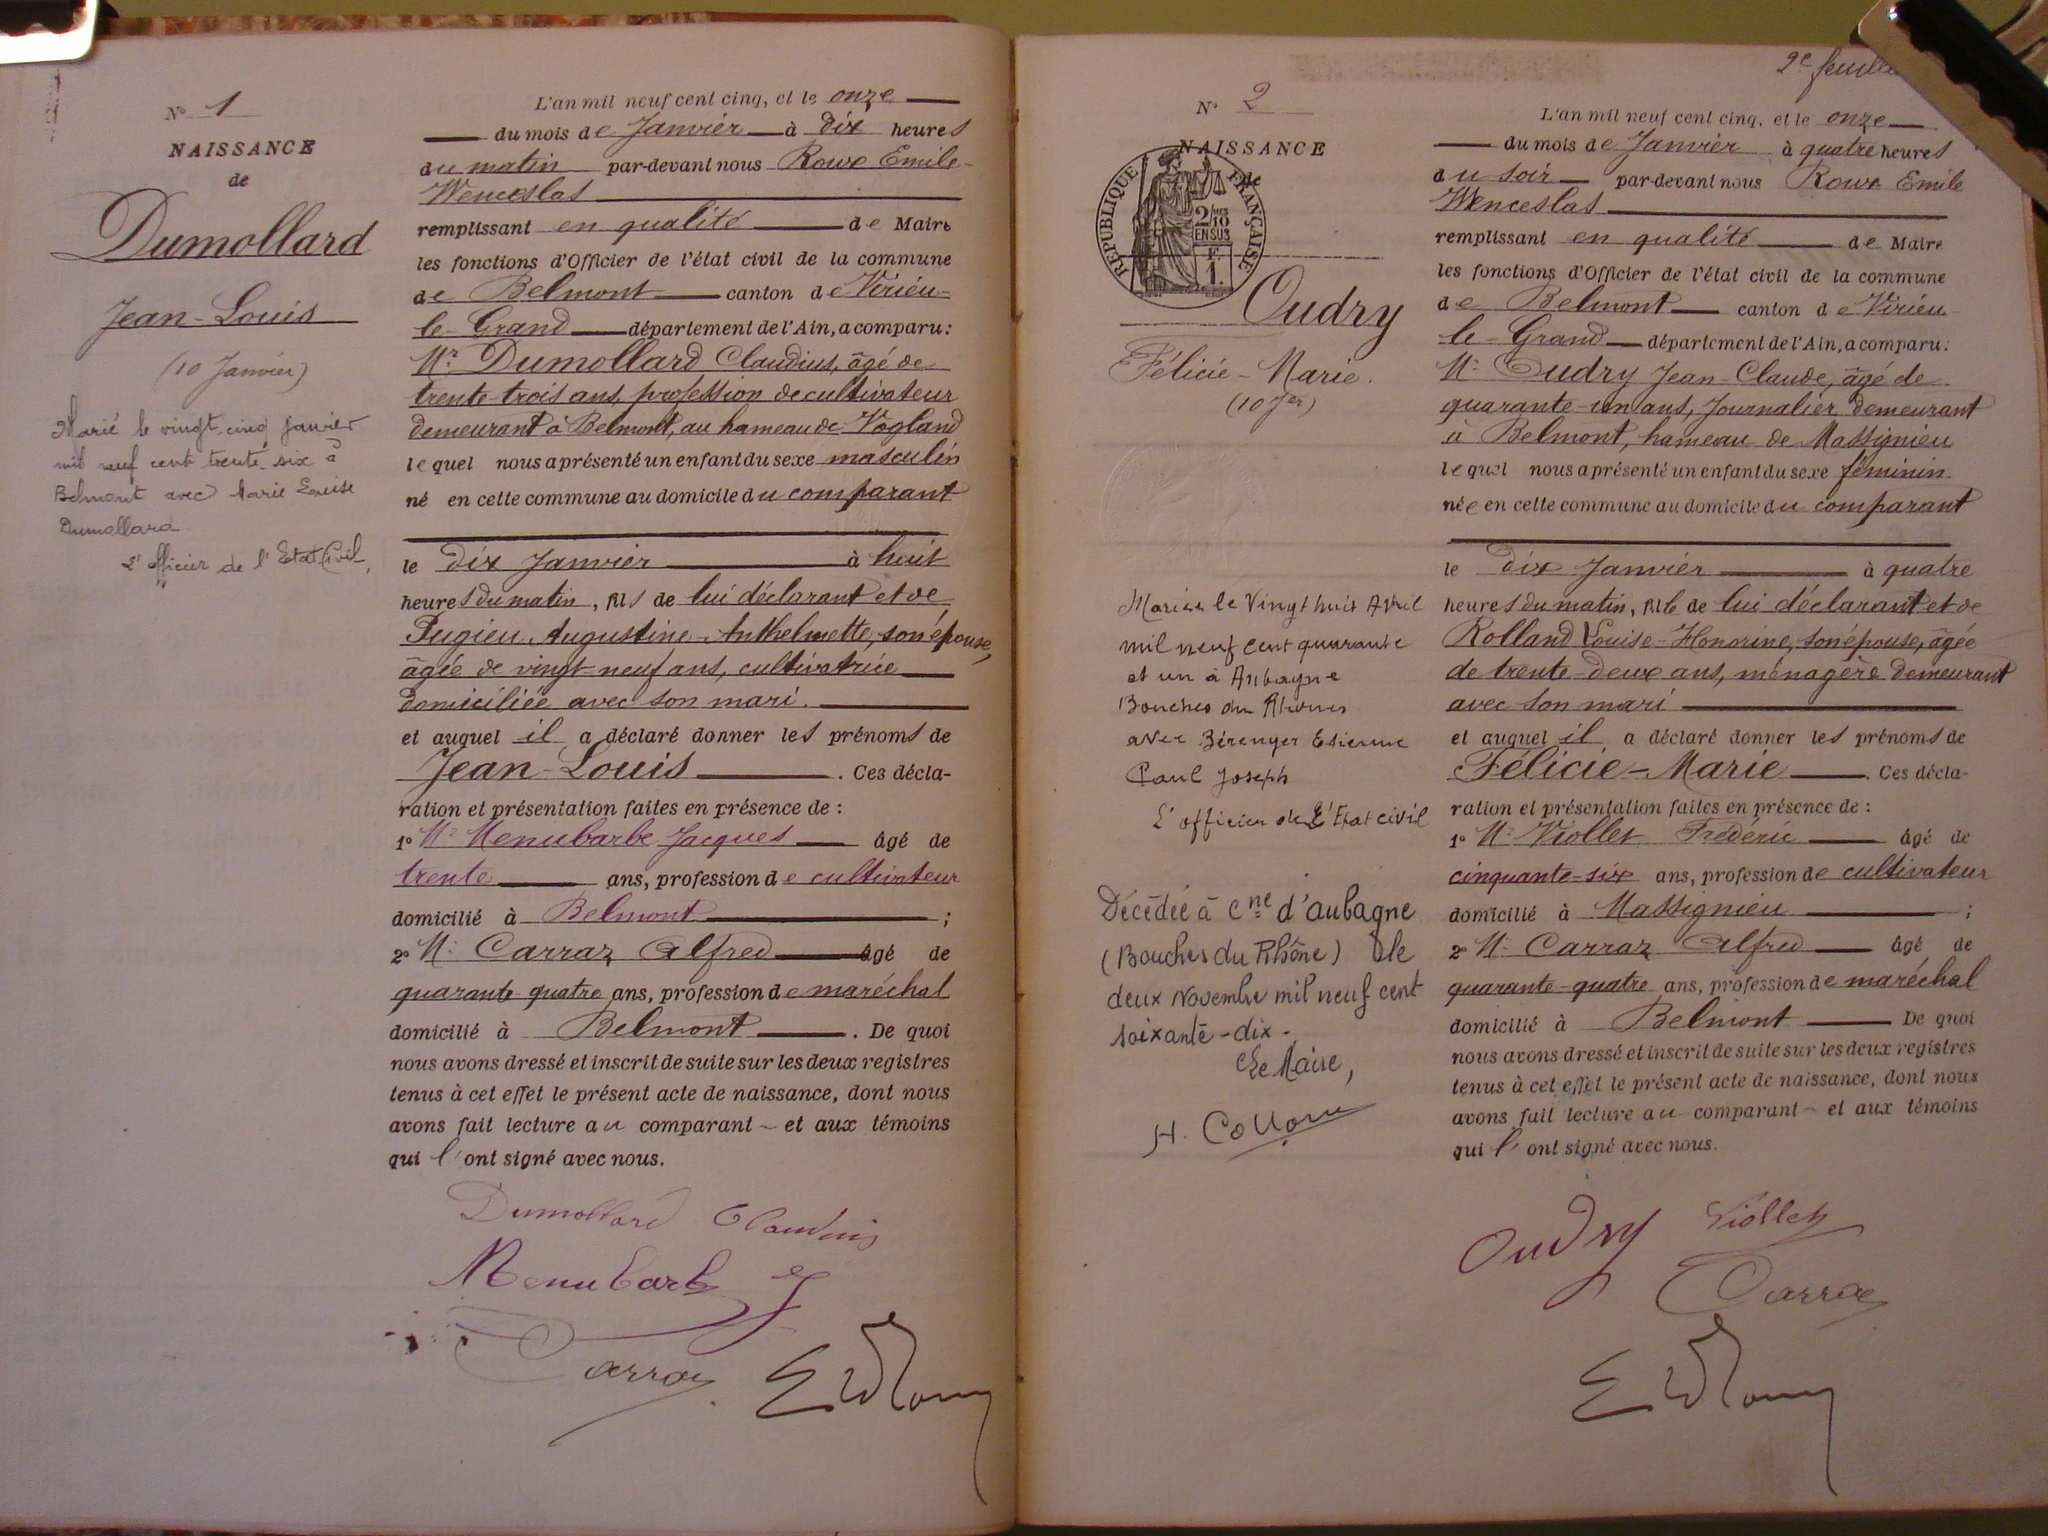 N° 1
NAISSANCE
de
Dumollard
Jean-Louis
(10 Janvier)
Marié le vingt-cinq janvier
mil neuf cent trente-six à
Belmont avec Marie Louise
Dumollard
L'officier de l'Etat Civil,
L'an mil neuf cent cinq, et le onze
du mois de Janvier à dix heures
du matin par-devant nous Roux Emile-
Wenceslas
remplissant en qualité de Maire
les fonctions d'Officier de l'état civil de la commune
de Belmont canton de Virieu-
le-Grand département de l'Ain, a comparu:
Mr Dumollard Claudius, âgé de
trente-trois ans, profession de cultivateur
demeurant à Belmont, au hameau de Vogland
lequel nous a présenté un enfant du sexe masculin
né en cette commune au domicile du comparant
le dix Janvier à huit
heures du matin, fils de lui déclarant et de
Pugieu Augustine-Anthelmette, son épouse,
âgée de vingt-neuf ans, cultivatrice
domiciliée avec son mari.
et auquel il a déclaré donner les prénoms de
Jean-Louis. Ces décla-
ration et présentation faites en présence de :
1° Mr Menubarbe Jacques âgé de
trente ans, profession de cultivateur
domicilié à Belmont ;
2° Mr Carraz Alfred âgé de
quarante-quatre ans, profession de maréchal
domicilié à Belmont. De quoi
nous avons dressé et inscrit de suite sur les deux registres
tenus à cet effet le présent acte de naissance, dont nous
avons fait lecture au comparant - et aux témoins
qui l'ont signé avec nous.
Dumollard Claudius
Menubarbe J
Carraz
2e feuillet
N° 2
NAISSANCE
de
RÉPUBLIQUE FRANÇAISE
2/10
EN SUS
1 F.
Oudry
Félicie-Marie.
(10 Jer)
Mariée le Vingt huit Avril
mil neuf cent quarante
et un à Aubagne
Bouches du Rhônes
avec Bérenger Etienne
Paul Joseph
L'officier de L'Etat civil
Décédée à Cne d'Aubagne
(Bouches du Rhône) le
deux Novembre mil neuf cent
soixante-dix.
Le Maire,
L'an mil neuf cent cinq, et le onze
du mois de Janvier à quatre heures
du soir par-devant nous Roux Emile
Wenceslas
remplissant en qualité de Maire
les fonctions d'Officier de l'état civil de la commune
de Belmont canton de Virieu-
le-Grand département de l'Ain, a comparu:
Mr Oudry Jean-Claude, âgé de
quarante-un ans, Journalier demeurant
à Belmont, hameau de Massignieu
lequel nous a présenté un enfant du sexe féminin
née en cette commune au domicile du comparant
le dix Janvier à quatre
heures du matin, fille de lui déclarant et de
Rolland Louise-Honorine, son épouse, âgée
de trente-deux ans, ménagère demeurant
avec son mari
et auquel il a déclaré donner les prénoms de
Félicie-Marie. Ces décla-
ration et présentation faites en présence de :
1° Mr Viollet Frédéric âgé de
cinquante-six ans, profession de cultivateur
domicilié à Massignieu ;
2° Mr Carraz Alfred âgé de
quarante-quatre ans, profession de maréchal
domicilié à Belmont De quoi
nous avons dressé et inscrit de suite sur les deux registres
tenus à cet effet le présent acte de naissance, dont nous
avons fait lecture au comparant - et aux témoins
qui l'ont signé avec nous.
Oudry Viollet
Carraz